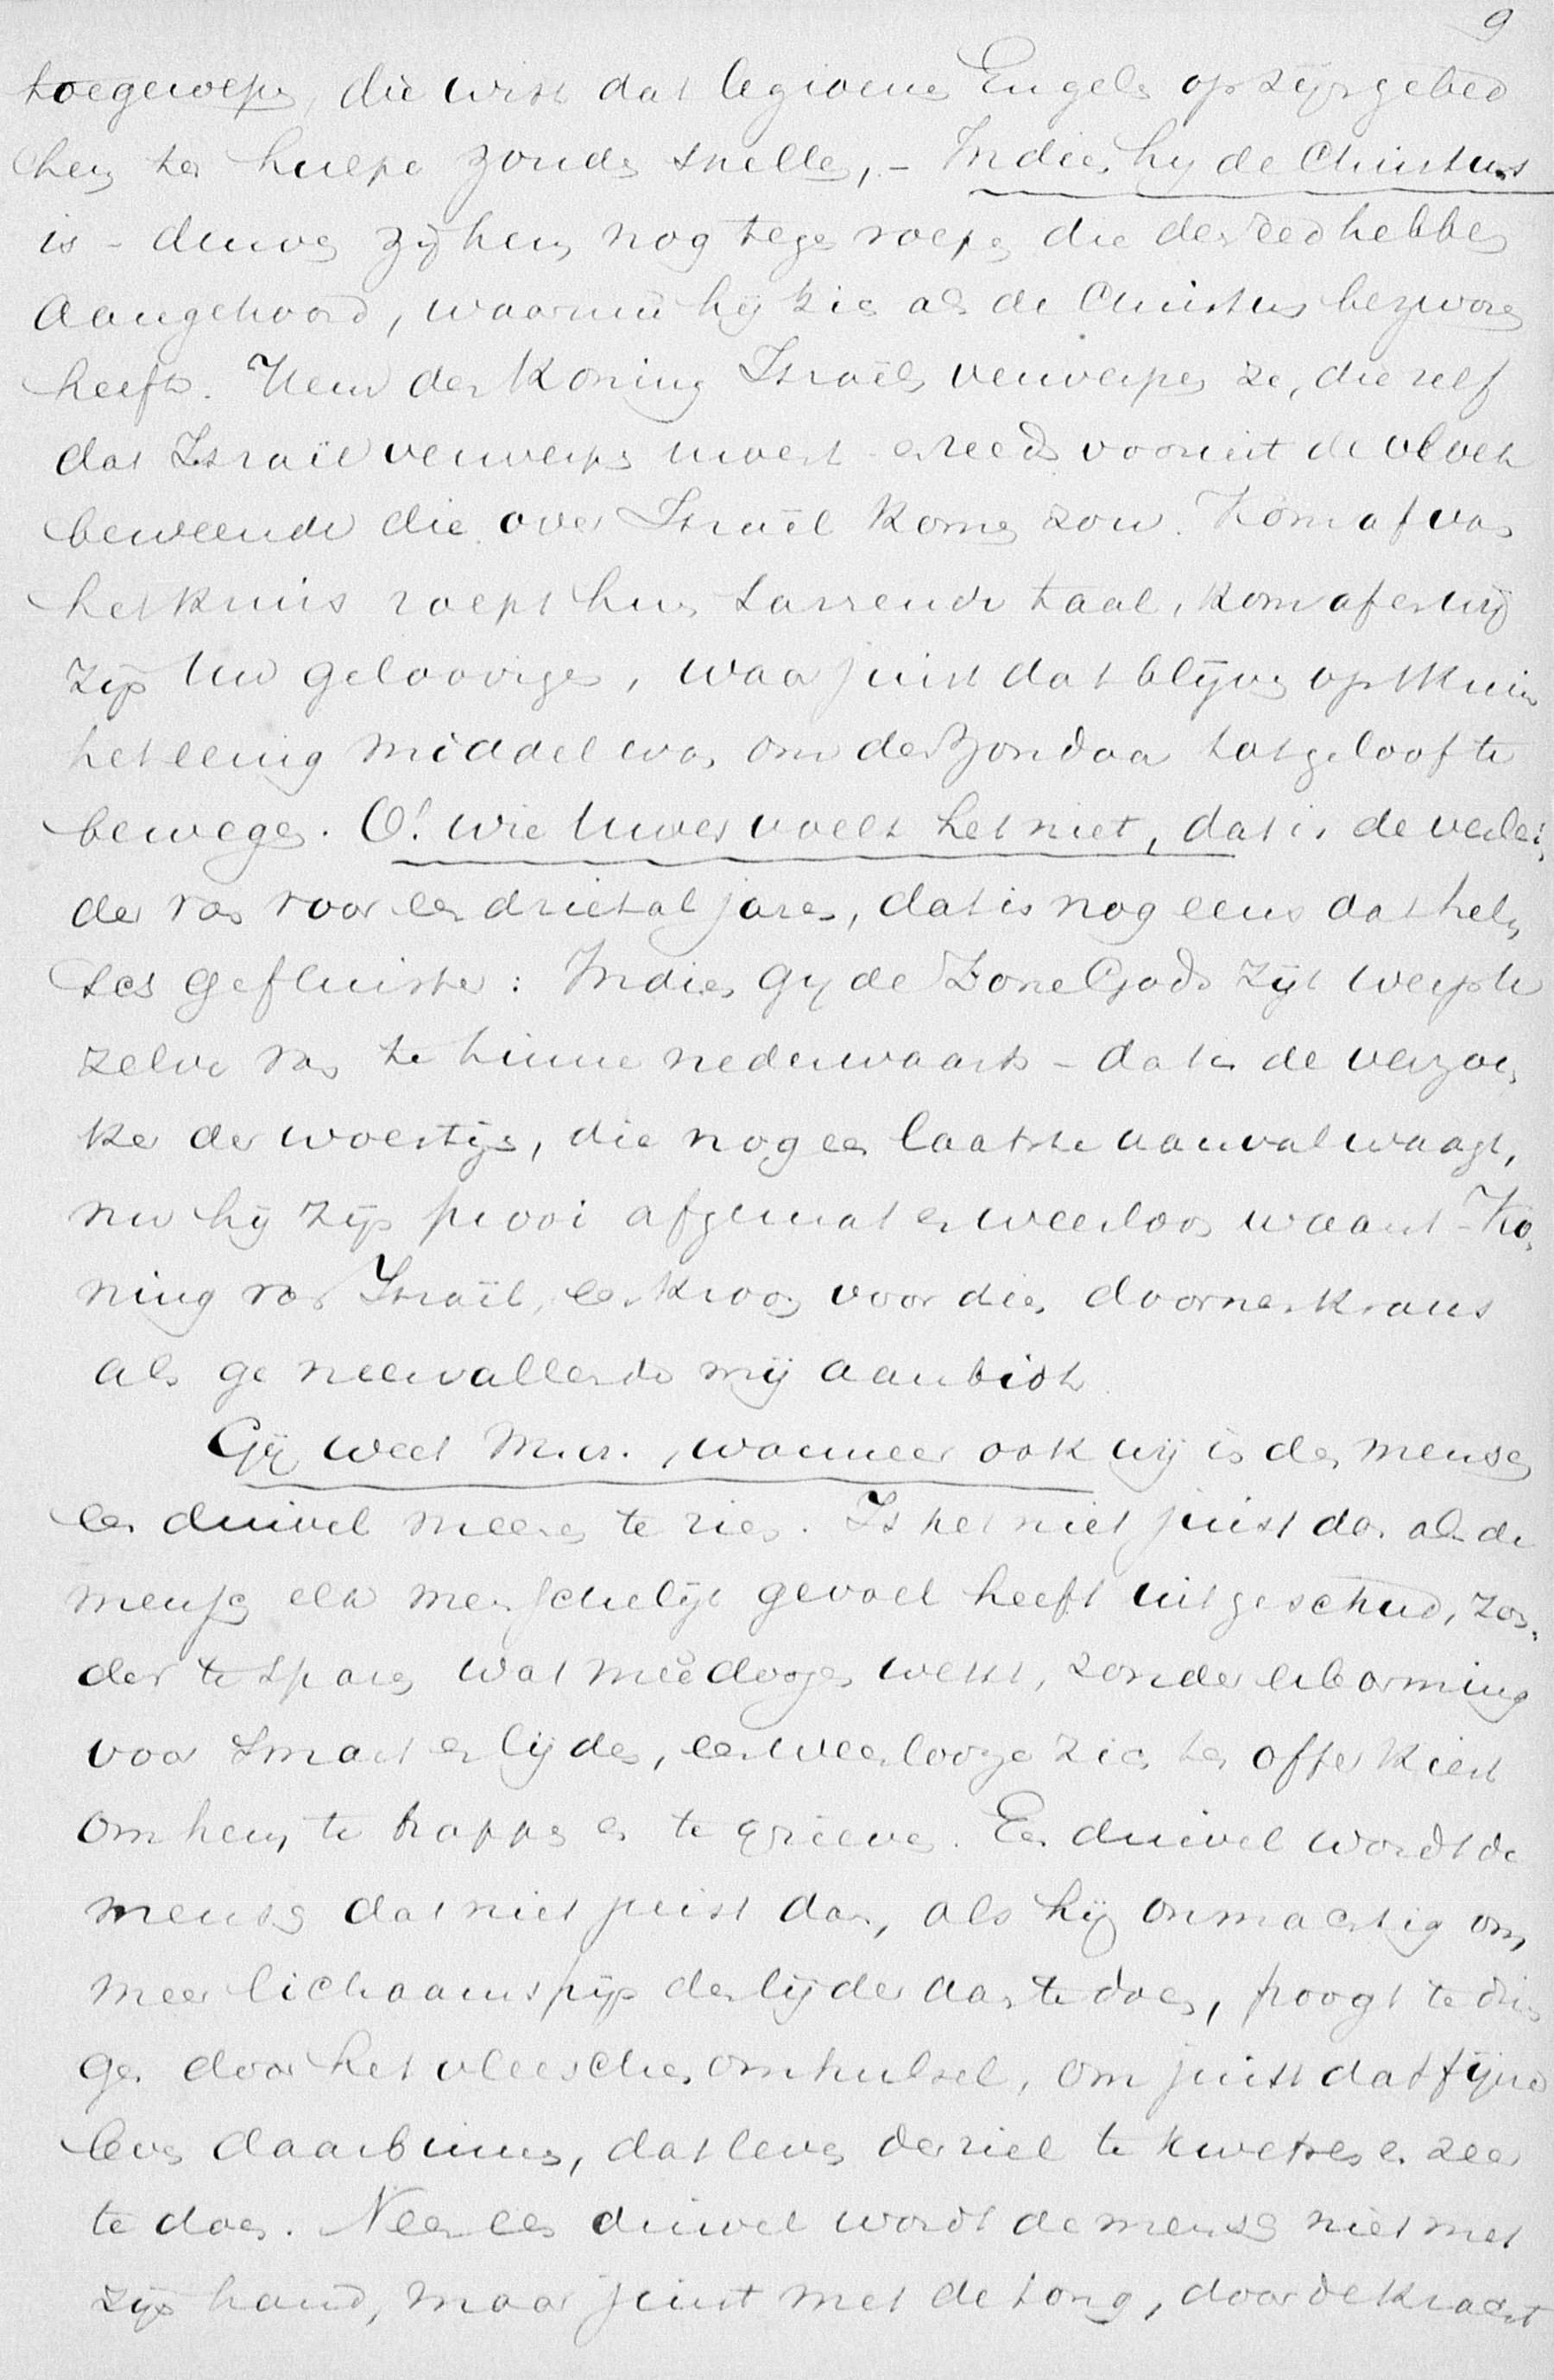 9
toegeworpen, die wist dat legioenen Engelen op zijn gebed
hem ter hulpe zouden snellen, - Indien hij de Christus
is - durven zij hem nog tegen roepen die den eed hebben
aangehoord, waarmeê hij zich als de Christus bezworen
heeft. Hem den Koning Israëls verwerpen ze, die zelf
dat Israël verwerpen moest en reeds vooruit de vloek
beweende die over Israël komen zou. Kom af van
het kruis roept hun sarrende taal, kom af en wij
zijn Uw geloovigen, waar juist dat blijven op 't kruis
het eenig middel was om den zondaar tot geloof te
bewegen. O! wie Uwer voelt het niet, dat is de verlei,
der van voor een drietal jaren, dat is nog eens dat hel,
sch gefluister: Indien Gy de Zone Gods zijt werp U
zelve van te tinne nederwaarts - dat is de verzoe,
ker der woestijn, die nog een laatste aanval waagt,
nu hij zijn prooi afgemat en weerloos waant - Ko,
ning van Israël, een kroon voor dien doornenkrans
als ge neervallende mij aanbidt.
Gij weet M.Br., wanneer ook wij in den mensch
een duivel meenen te zien. Is het niet juist dan als de
mensch elk menschelijk gevoel heeft uitgeschud, zon,
der te sparen wat meêdoogen wekt, zonder erbarming
voor smart en lijden, een weerlooze zich ten offer kiest
om hem te trappen en te grieven. Een duivel wordt de
mensch dat niet juist dan, als hij onmachtig om
meer lichaamspijn den lijder aan te doen, poogt te drin
gen door het vleeschen omhulsel, om juist dat fijne
leven daarbinnen, dat leven der ziel te kwetsen en zeer
te doen. Neen een duivel wordt de mensch niet met
zijn hand, maar juist met de tong, door de kracht